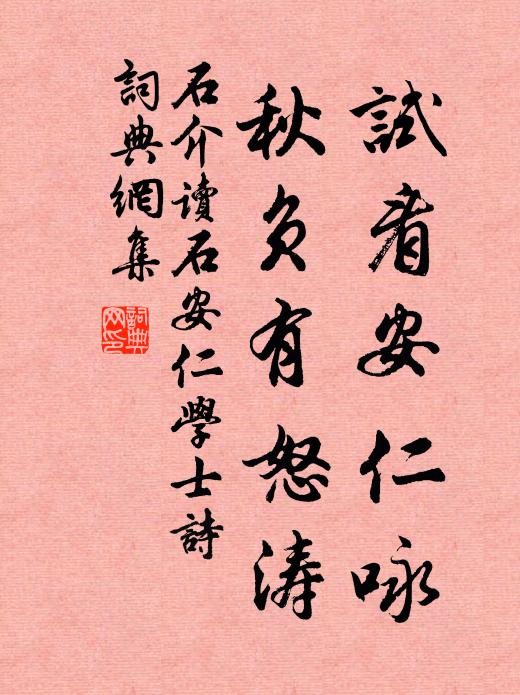 試看安仁咏
秋負有怒濤
石介讀石安仁學士詩
詞典網集
詞典
网印